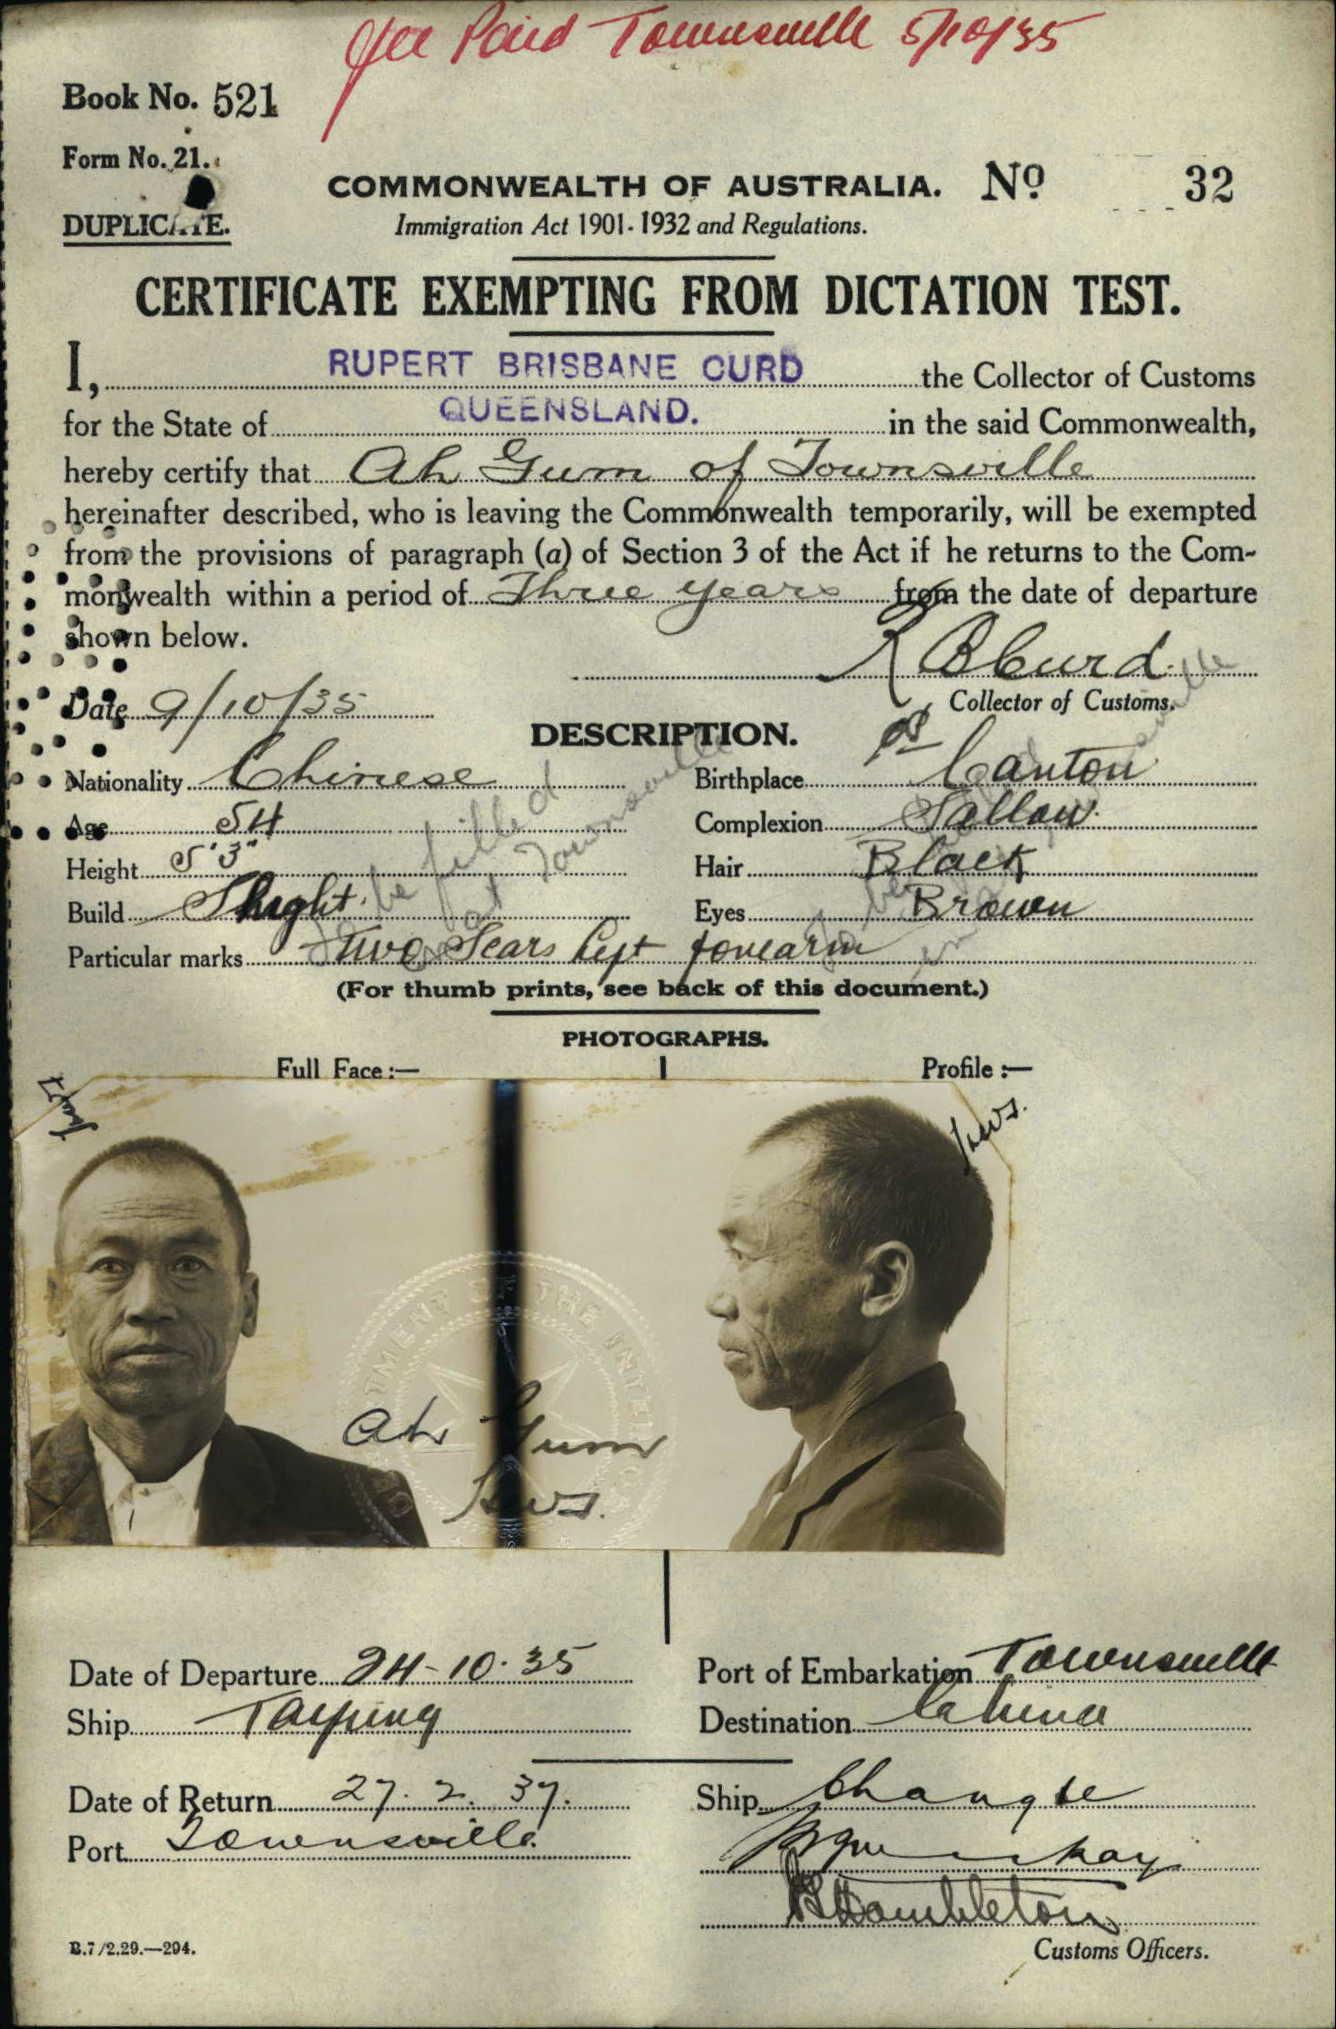 Fee Paid Townsville 5/10/35
Book No. 521
Form No. 21.
DUPLICATE.
COMMONWEALTH OF AUSTRALIA. No 32
Immigration Act 1901-1932 and Regulations.
CERTIFICATE EXEMPTING FROM DICTATION TEST.
I, RUPERT BRISBANE CURD the Collector of Customs
for the State of QUEENSLAND. in the said Commonwealth,
hereby certify that Ah Gum of Townsville
hereinafter described, who is leaving the Commonwealth temporarily, will be exempted
from the provisions of paragraph (a) of Section 3 of the Act if he returns to the Com-
monwealth within a period of Three years from the date of departure
shown below.
R B Curd.
Date 9/10/35 Collector of Customs.
DESCRIPTION.
Nationality Chinese Birthplace Canton
Age 54 Complexion Sallow.
Height 5' 3" Hair Black
Build Slight. Eyes Brown
To be filled in at Townsville
Particular marks Two Scars left forearm
(For thumb prints, see back of this document.)
PHOTOGRAPHS.
Full Face:— Profile:—
DEPARTMENT OF THE INTERIOR
Ah Gum
Date of Departure 24-10-35 Port of Embarkation Townsville
Ship Taiping Destination China
Date of Return 27. 2. 37. Ship Changte
Port Townsville.
Hambleton
Customs Officers.
B.7/2.29.—294.